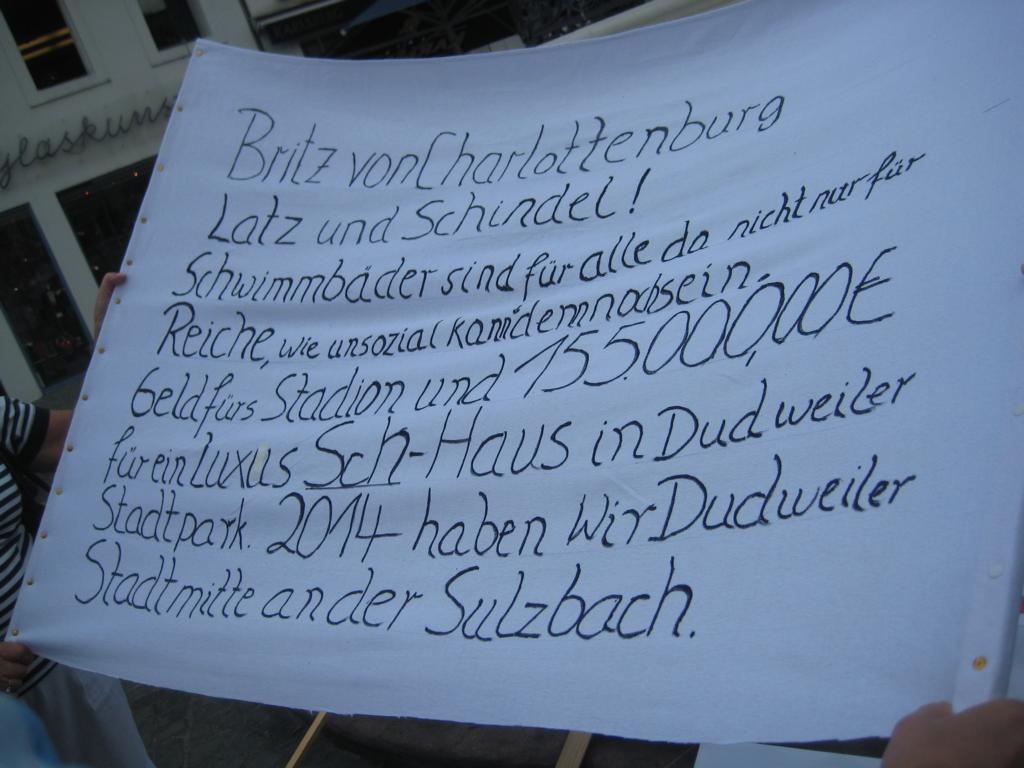 glaskuns
Britz von Charlottenburg
Latz und Schindel!
Schwimmbäder sind für alle da nicht nur für
Reiche, wie unsozial kann denn noch sein.
Geld fürs Stadion und 155.000,00 €
für ein Luxus Sch-Haus in Dudweiler
Stadtpark. 2014 haben Wir Dudweiler
Stadtmitte an der Sulzbach.